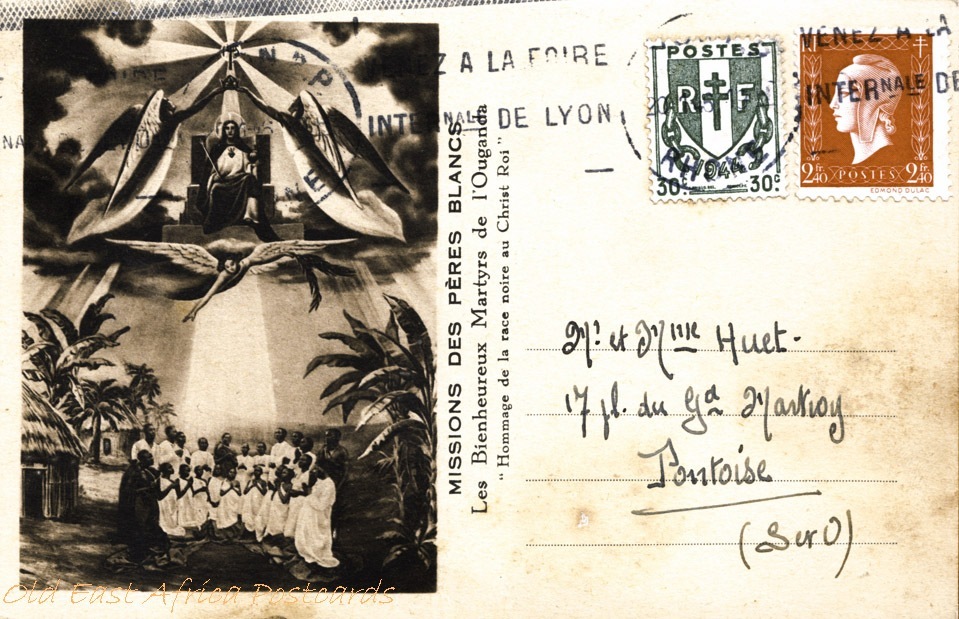 VENEZ A LA FOIRE
INTERNALE DE LYON
VENEZ A LA
INTERNALE DE
POSTES
R F
1944
30c 30c
2fr.40 POSTES 2fr.40
EDMOND DULAC
MISSIONS DES PÈRES BLANCS
Les Bienheureux Martyrs de l'Ouganda
"Hommage de la race noire au Christ Roi"
Mr et Mme Huet.
17 pl. du Gd Martroy
Pontoise
(S et O)
Old East Africa Postcards